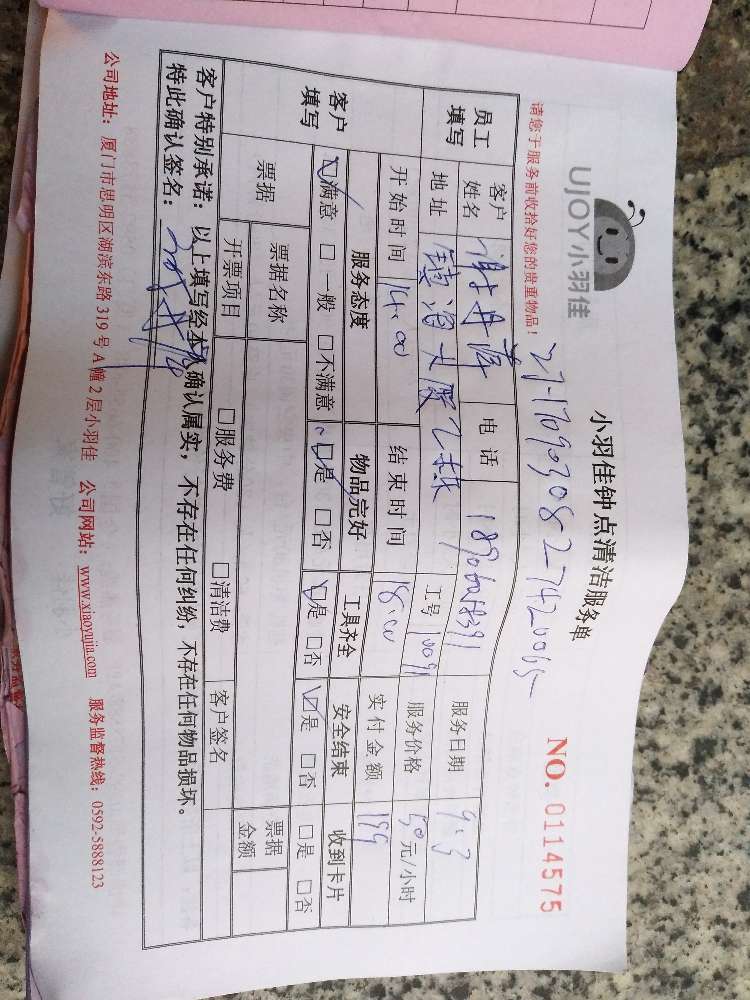 UJOY小羽佳
小羽佳钟点清洁服务单
NO. 0114575
请您于服务前收拾好您的贵重物品！
员工填写 客户姓名 电话 服务日期 9.3
地址 镇海大厦乙栋 工号 10091 服务价格 50元/小时
开始时间 14:00 结束时间 18:00 实付金额 199
客户填写 服务态度 物品完好 工具齐全 安全结束 收到卡片
☑满意 □一般 □不满意 ☑是 □否 ☑是 □否 ☑是 □否 □是 □否
票据 票据名称 票据金额
开票项目 □服务费 □清洁费 客户签名
客户特别承诺：以上填写经本人确认属实，不存在任何纠纷，不存在任何物品损坏。
特此确认签名：
公司地址：厦门市思明区湖滨东路319号A幢2层小羽佳 公司网站：www.xiaoyujia.com 服务监督热线：0592-5888123